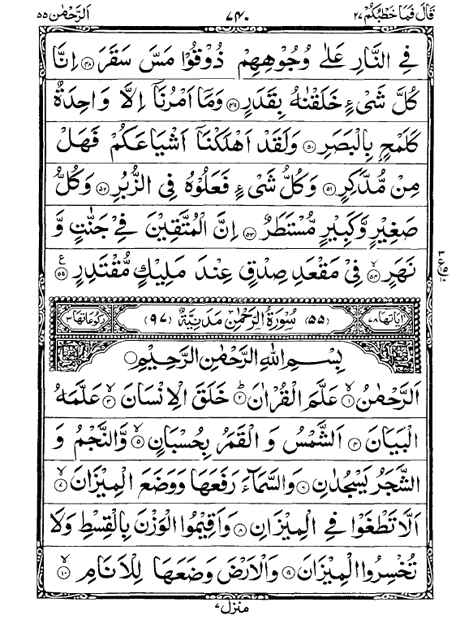 قَالَ فَمَا خَطْبُكُمْ ٢٧ ٧٤٠ اَلرَّحْمٰن ٥٥
فِي النَّارِ عَلٰى وُجُوْهِهِمْ ذُوْقُوْا مَسَّ سَقَرَ ﴿٤٨﴾ اِنَّا
كُلَّ شَيْءٍ خَلَقْنٰهُ بِقَدَرٍ ﴿٤٩﴾ وَمَا اَمْرُنَاۤ اِلَّا وَاحِدَةٌ
كَلَمْحٍۭ بِالْبَصَرِ ﴿٥٠﴾ وَلَقَدْ اَهْلَكْنَاۤ اَشْيَاعَكُمْ فَهَلْ
مِنْ مُّدَّكِرٍ ﴿٥١﴾ وَكُلُّ شَيْءٍ فَعَلُوْهُ فِي الزُّبُرِ ﴿٥٢﴾ وَكُلُّ
صَغِيْرٍ وَّكَبِيْرٍ مُّسْتَطَرٌ ﴿٥٣﴾ اِنَّ الْمُتَّقِيْنَ فِيْ جَنّٰتٍ وَّ
نَهَرٍ ﴿٥٤﴾ فِيْ مَقْعَدِ صِدْقٍ عِنْدَ مَلِيْكٍ مُّقْتَدِرٍ ﴿٥٥﴾ ع
اٰيَاتُهَا ٧٨ (٥٥) سُوْرَةُ الرَّحْمٰنِ مَدَنِيَّةٌ (٩٧) رُكُوْعَاتُهَا ٣
بِسْمِ اللّٰهِ الرَّحْمٰنِ الرَّحِيْمِ
اَلرَّحْمٰنُ ﴿١﴾ عَلَّمَ الْقُرْاٰنَ ﴿٢﴾ خَلَقَ الْاِنْسَانَ ﴿٣﴾ عَلَّمَهُ
الْبَيَانَ ﴿٤﴾ اَلشَّمْسُ وَ الْقَمَرُ بِحُسْبَانٍ ﴿٥﴾ وَّالنَّجْمُ وَ
الشَّجَرُ يَسْجُدٰنِ ﴿٦﴾ وَالسَّمَآءَ رَفَعَهَا وَوَضَعَ الْمِيْزَانَ ﴿٧﴾
اَلَّا تَطْغَوْا فِي الْمِيْزَانِ ﴿٨﴾ وَاَقِيْمُوا الْوَزْنَ بِالْقِسْطِ وَلَا
تُخْسِرُوا الْمِيْزَانَ ﴿٩﴾ وَالْاَرْضَ وَضَعَهَا لِلْاَنَامِ ﴿١٠﴾
منزل ٧